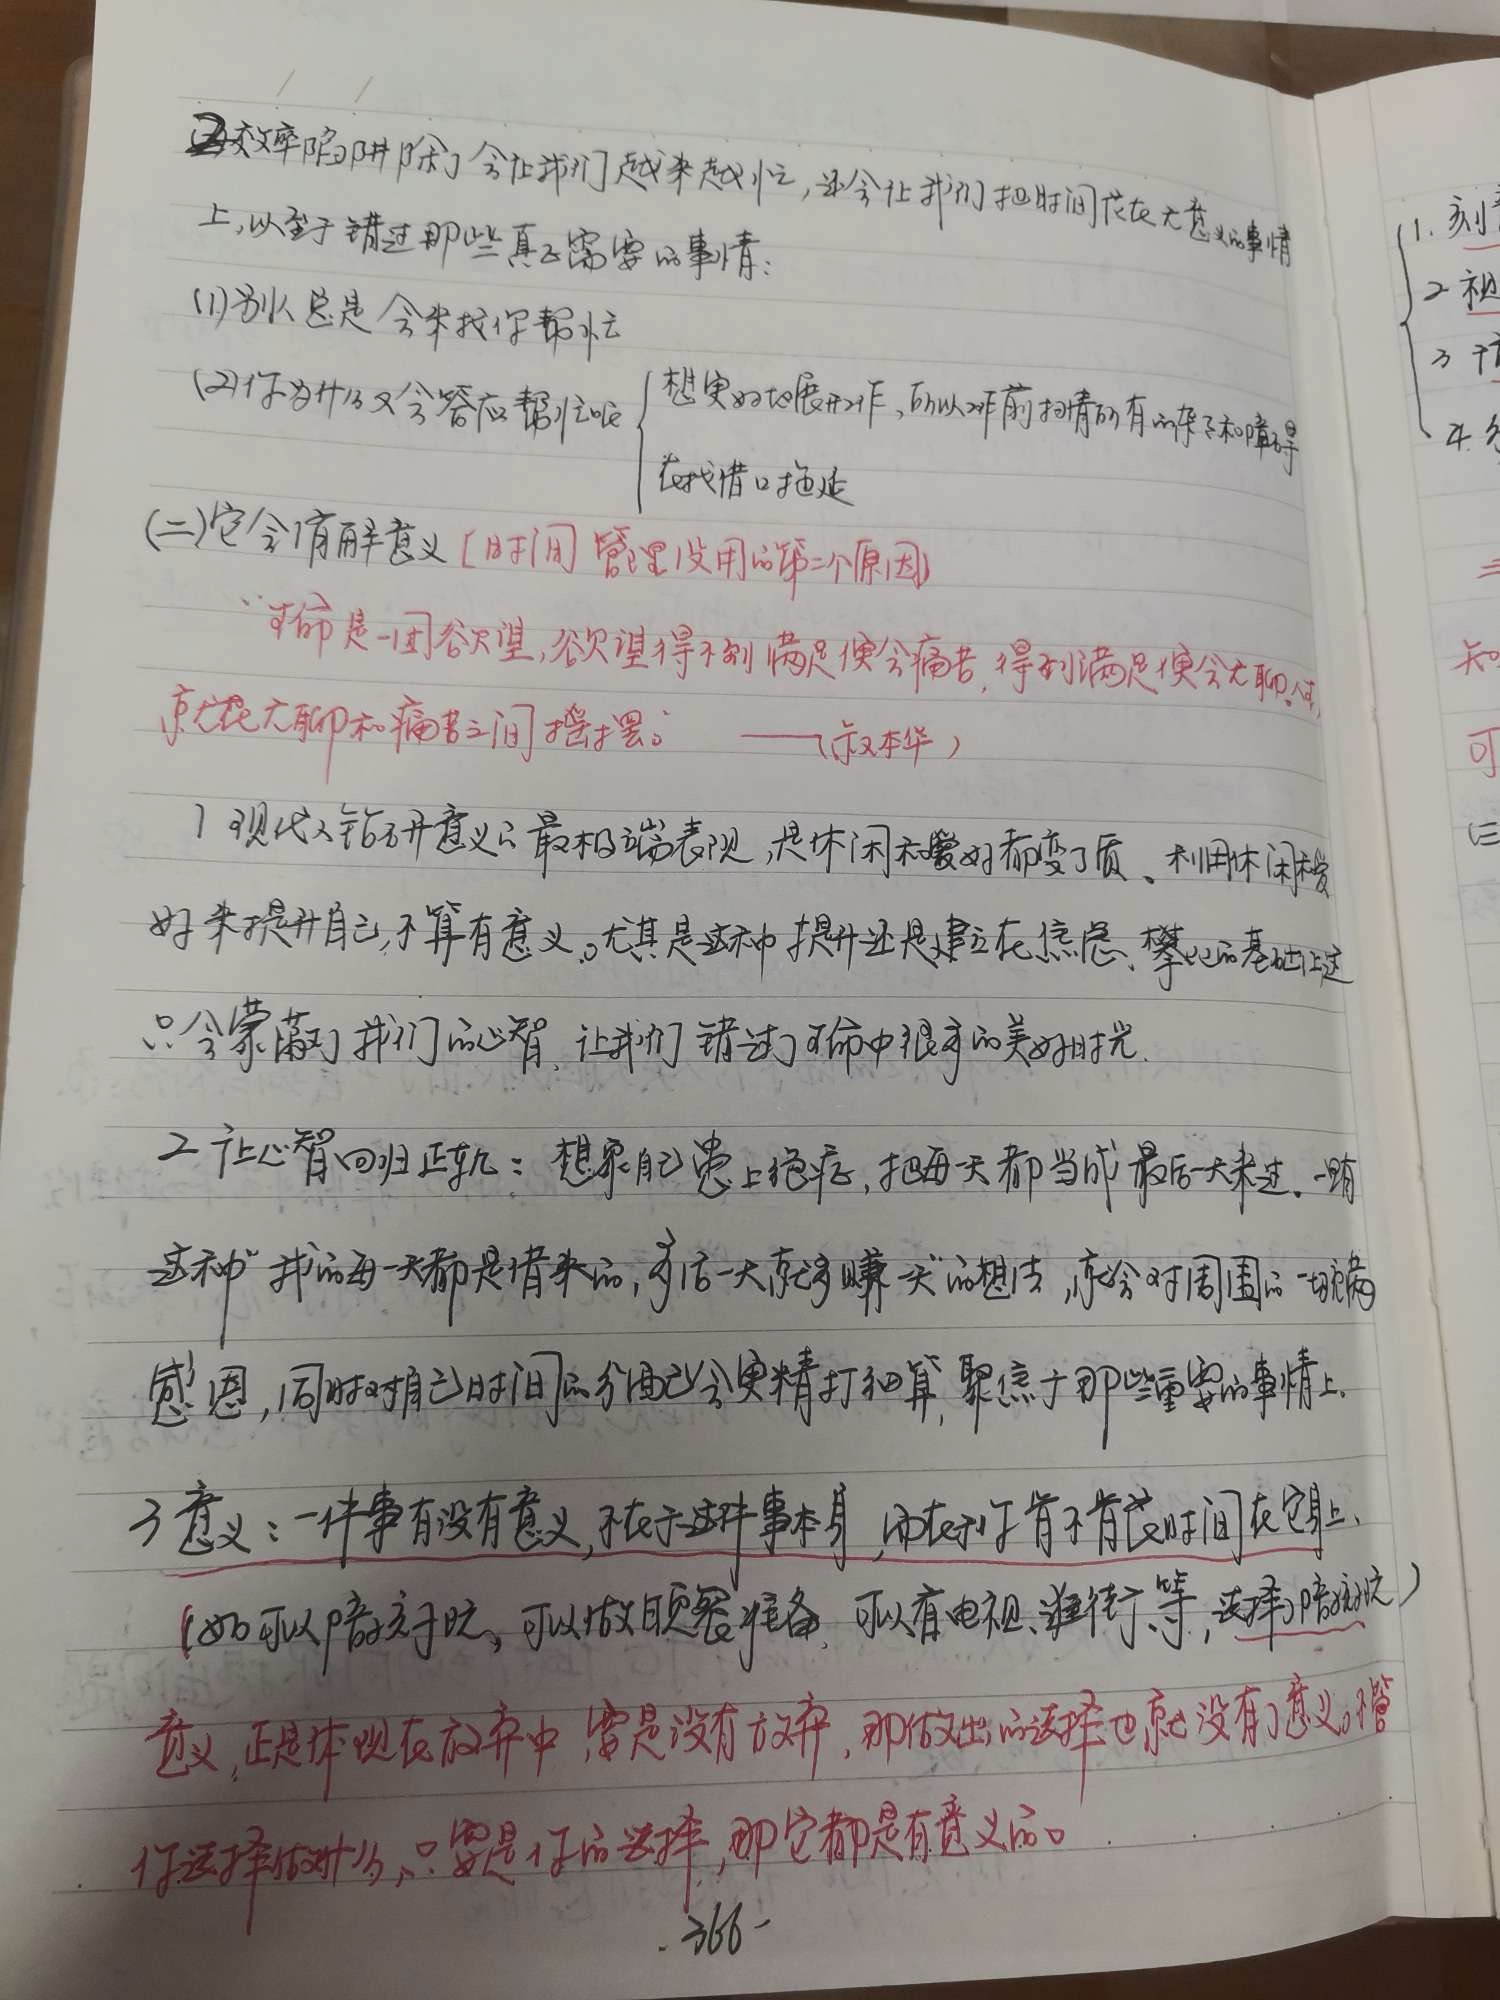 2效率陷阱除了会让我们越来越忙,还会让我们把时间花在无意义的事情
上,以至于错过那些真正需要的事情:
(1)别人总是会来找你帮忙
(2)你为什么又会答应帮忙呢
想更好地展开工作,所以工作前扫清所有的杂念和障碍
在找借口拖延
(二)它会消解意义[时间管理没用的第二个原因]
“生命是一团欲望,欲望得不到满足便会痛苦,得到满足便会无聊。人生
就在无聊和痛苦之间摇摆。” ——(叔本华)
1 现代人错开意义的最极端表现,是休闲和爱好都变了质。利用休闲和爱
好来提升自己,不算有意义。尤其是这种提升还是建立在焦虑、攀比的基础上这
只会蒙蔽了我们的心智,让我们错过了生命中很多的美好时光.
2 让心智回归正轨:想象自己患上绝症,把每天都当成最后一天来过.一旦有
这种“我的每一天都是借来的,多活一天就多赚一天”的想法,就会对周围的一切充满
感恩,同时对自己时间的分配也会更精打细算,聚焦于那些重要的事情上.
3 意义:一件事有没有意义,不在于这件事本身,而在于你肯不肯花时间在它身上.
(如可以陪孩子玩、可以做晚餐准备,可以看电视、逛街等,选择了陪孩子玩)
意义,正是体现在放弃中,要是没有放弃,那做出的选择也就没有了意义。不管
你选择做什么,只要是你的选择,那它都是有意义的。
-366-
1.刻意
2
3
4.
知
可
(三